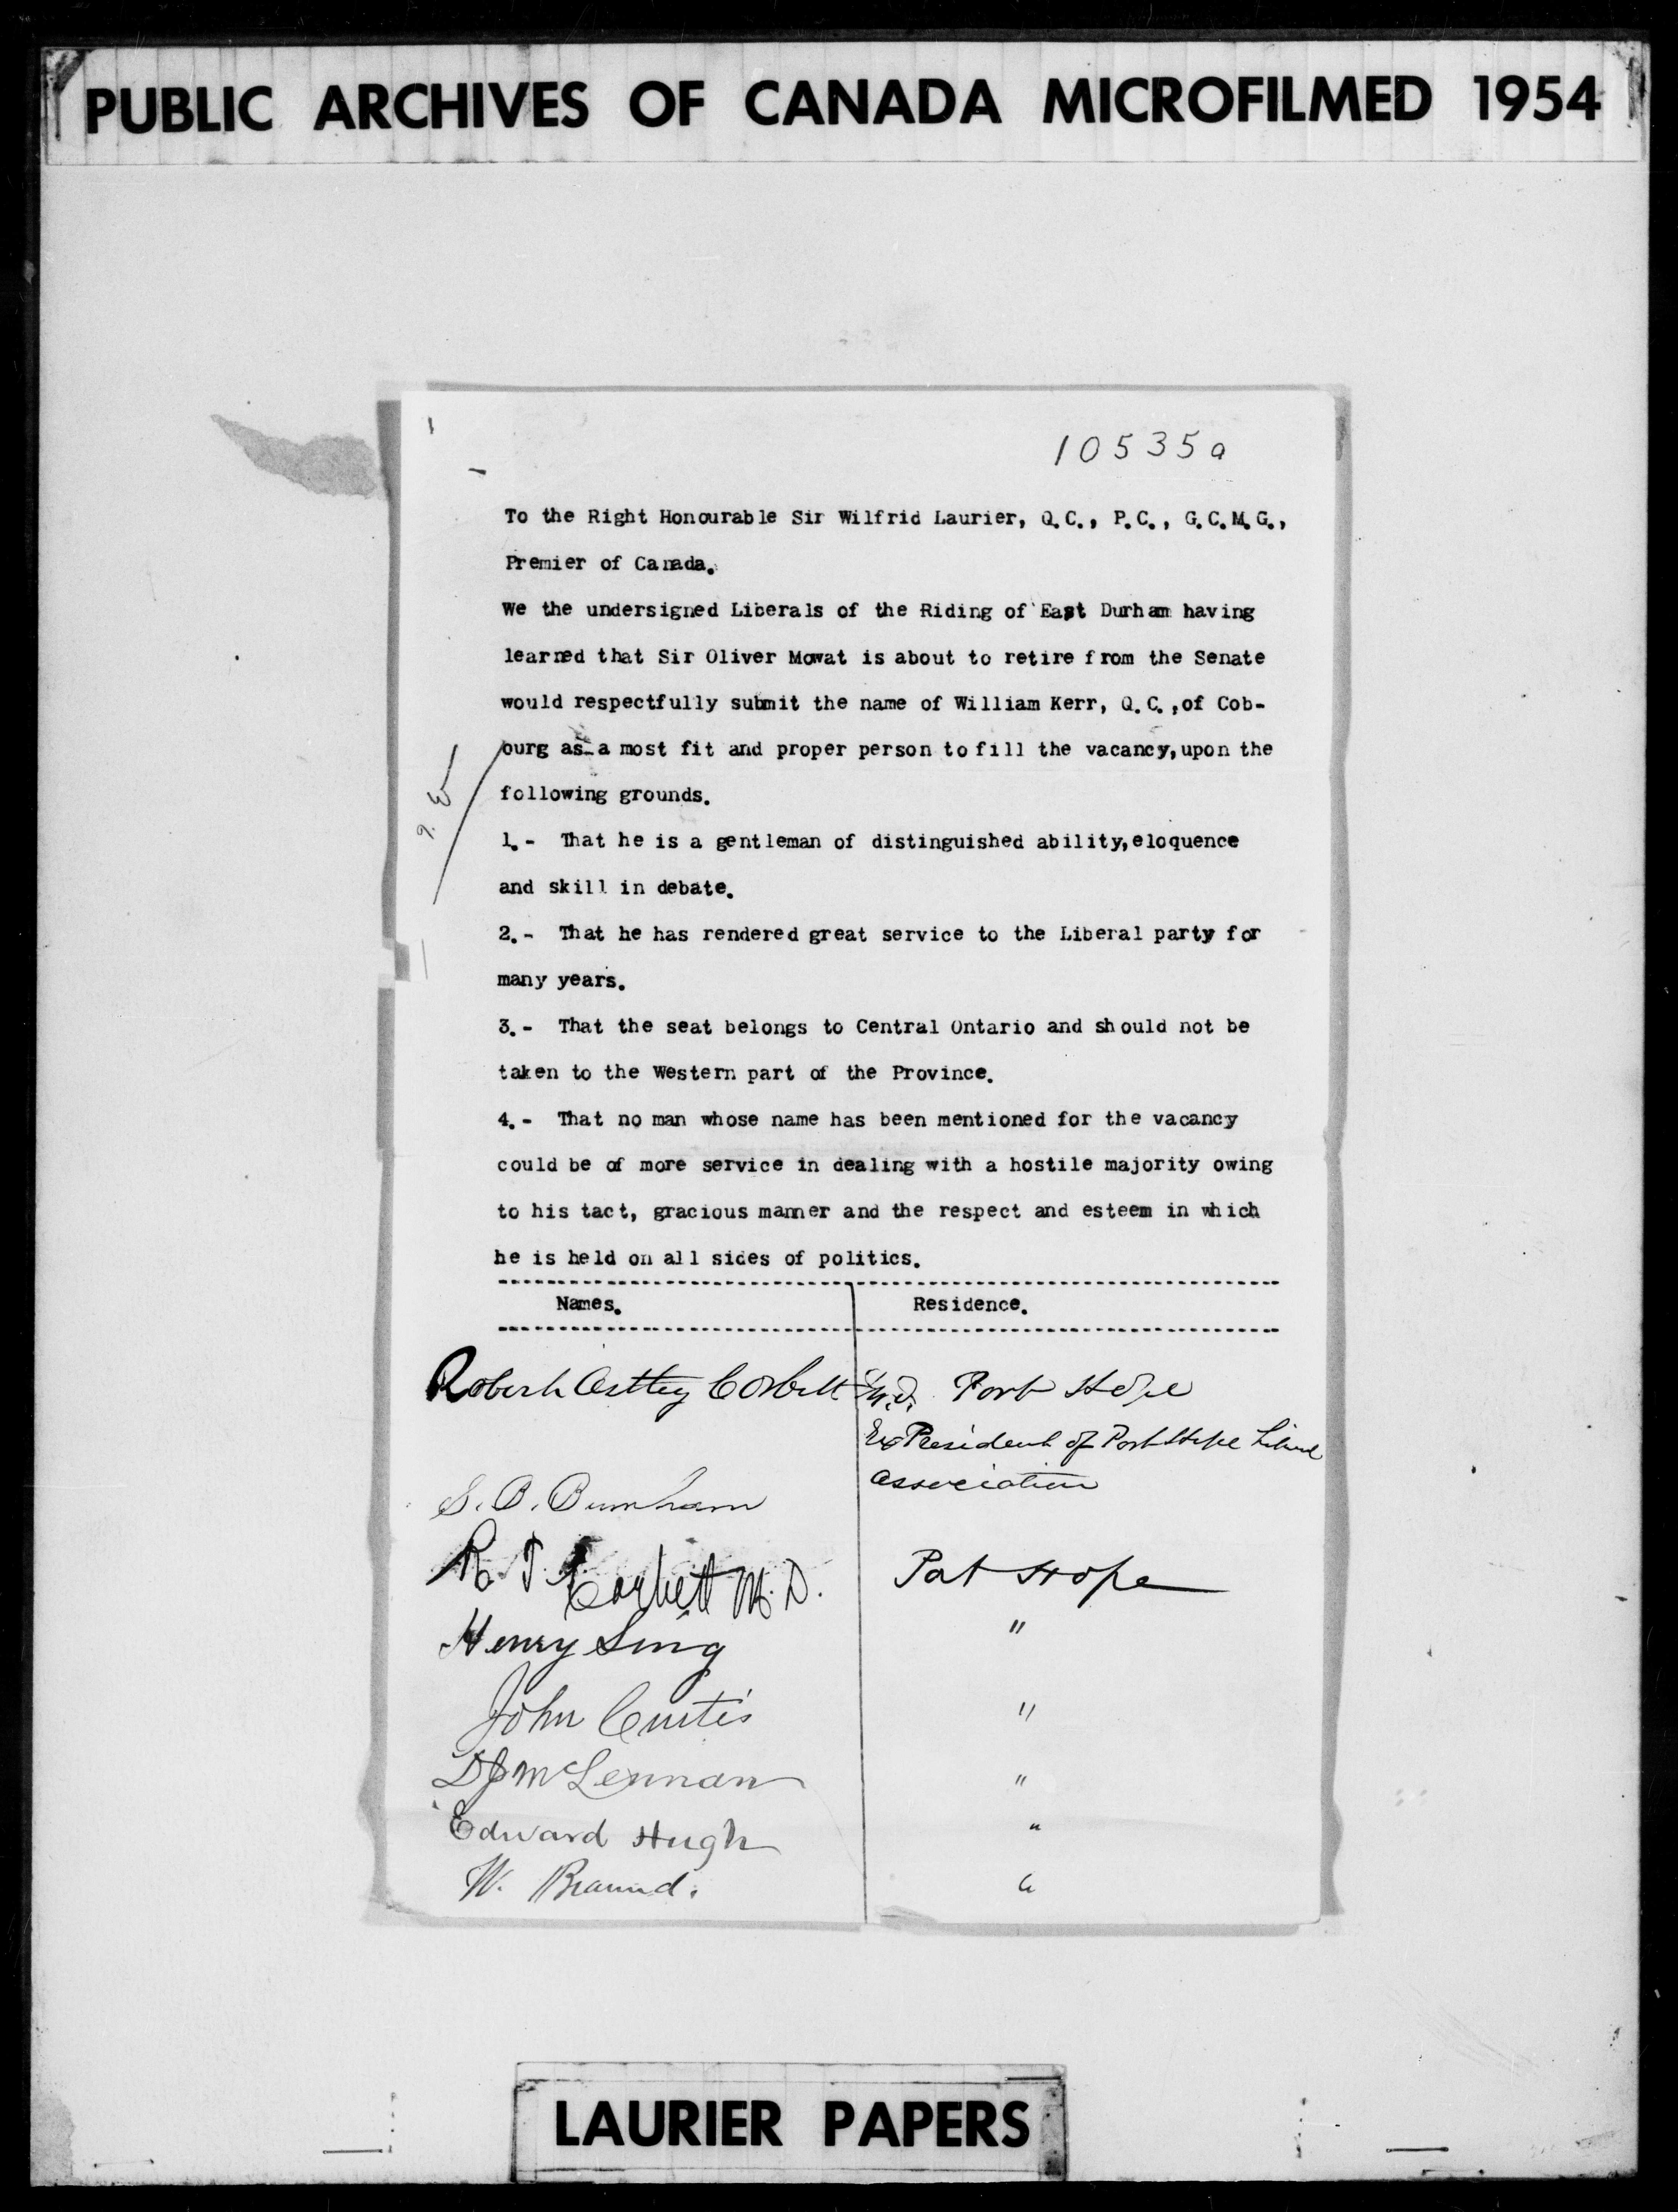 PUBLIC ARCHIVES OF CANADA MICROFILMED 1954
10535a
To the Right Honourable Sir Wilfrid Laurier, Q.C., P.C., G.C.M.G.,
Premier of Canada.
We the undersigned Liberals of the Riding of East Durham having
learned that Sir Oliver Mowat is about to retire from the Senate
would respectfully submit the name of William Kerr, Q.C.,of Cob-
ourg as a most fit and proper person to fill the vacancy,upon the
following grounds.
1.- That he is a gentleman of distinguished ability,eloquence
and skill in debate.
2.- That he has rendered great service to the Liberal party for
many years.
3.- That the seat belongs to Central Ontario and should not be
taken to the Western part of the Province.
4.- That no man whose name has been mentioned for the vacancy
could be of more service in dealing with a hostile majority owing
to his tact, gracious manner and the respect and esteem in which
he is held on all sides of politics.
Names. Residence.
Robert Corbett M.D. Port Hope
Ex President of Port Hope Liberal
Association
S. B. Burnham
R. T. Corbett M.D. Port Hope
Henry "
John Curtis "
D J McLennan "
Edward Hugh "
W. Braund. "
LAURIER PAPERS